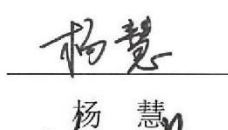 杨慧
杨 慧